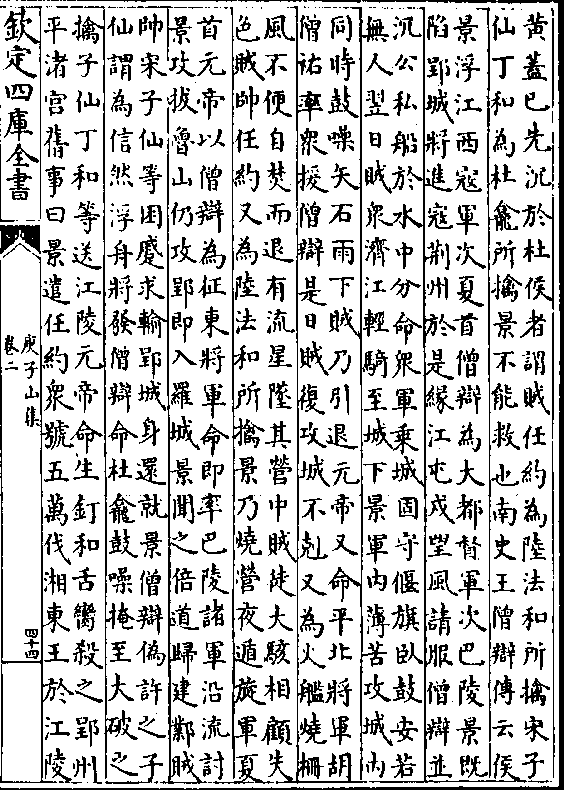 黄蓋已先沉於杜侯者謂賊任約為陸法和所擒宋子
仙丁和為杜龕所擒景不能救也南史王僧辯傳云侯
景浮江西寇軍次夏首僧辯為大都督軍次巴陵景既
陷郢城將進寇荆州於是緣江屯戍望風請服僧辯並
沉公私船於水中分命衆軍乗城固守偃旗臥鼓安若
無人翌日賊衆濟江輕騎至城下景軍内薄苦攻城内
同時鼓噪矢石雨下賊乃引退元帝又命平北將軍胡
僧祐率衆援僧辯是日賊復攻城不剋又為火艦燒栅
風不便自焚而退有流星墜其營中賊徒大駭相顧失
色賊帥任約又為陸法和所擒景乃燒營夜遁旋軍夏
首元帝以僧辯為征東將軍命即率巴陵諸軍沿流討
景攻拔魯山仍攻郢即入羅城景聞之倍道歸建鄴賊
帥宋子仙等困蹙求輸郢城身還就景僧辯偽許之子
仙謂為信然浮舟將發僧辯命杜龕鼓噪掩至大破之
擒子仙丁和等送江陵元帝命生釘和舌臠殺之郢州
平渚宫舊事曰景遣任約衆號五萬伐湘東王於江陵
欽定四庫全書
庾子山集
卷二
四十四